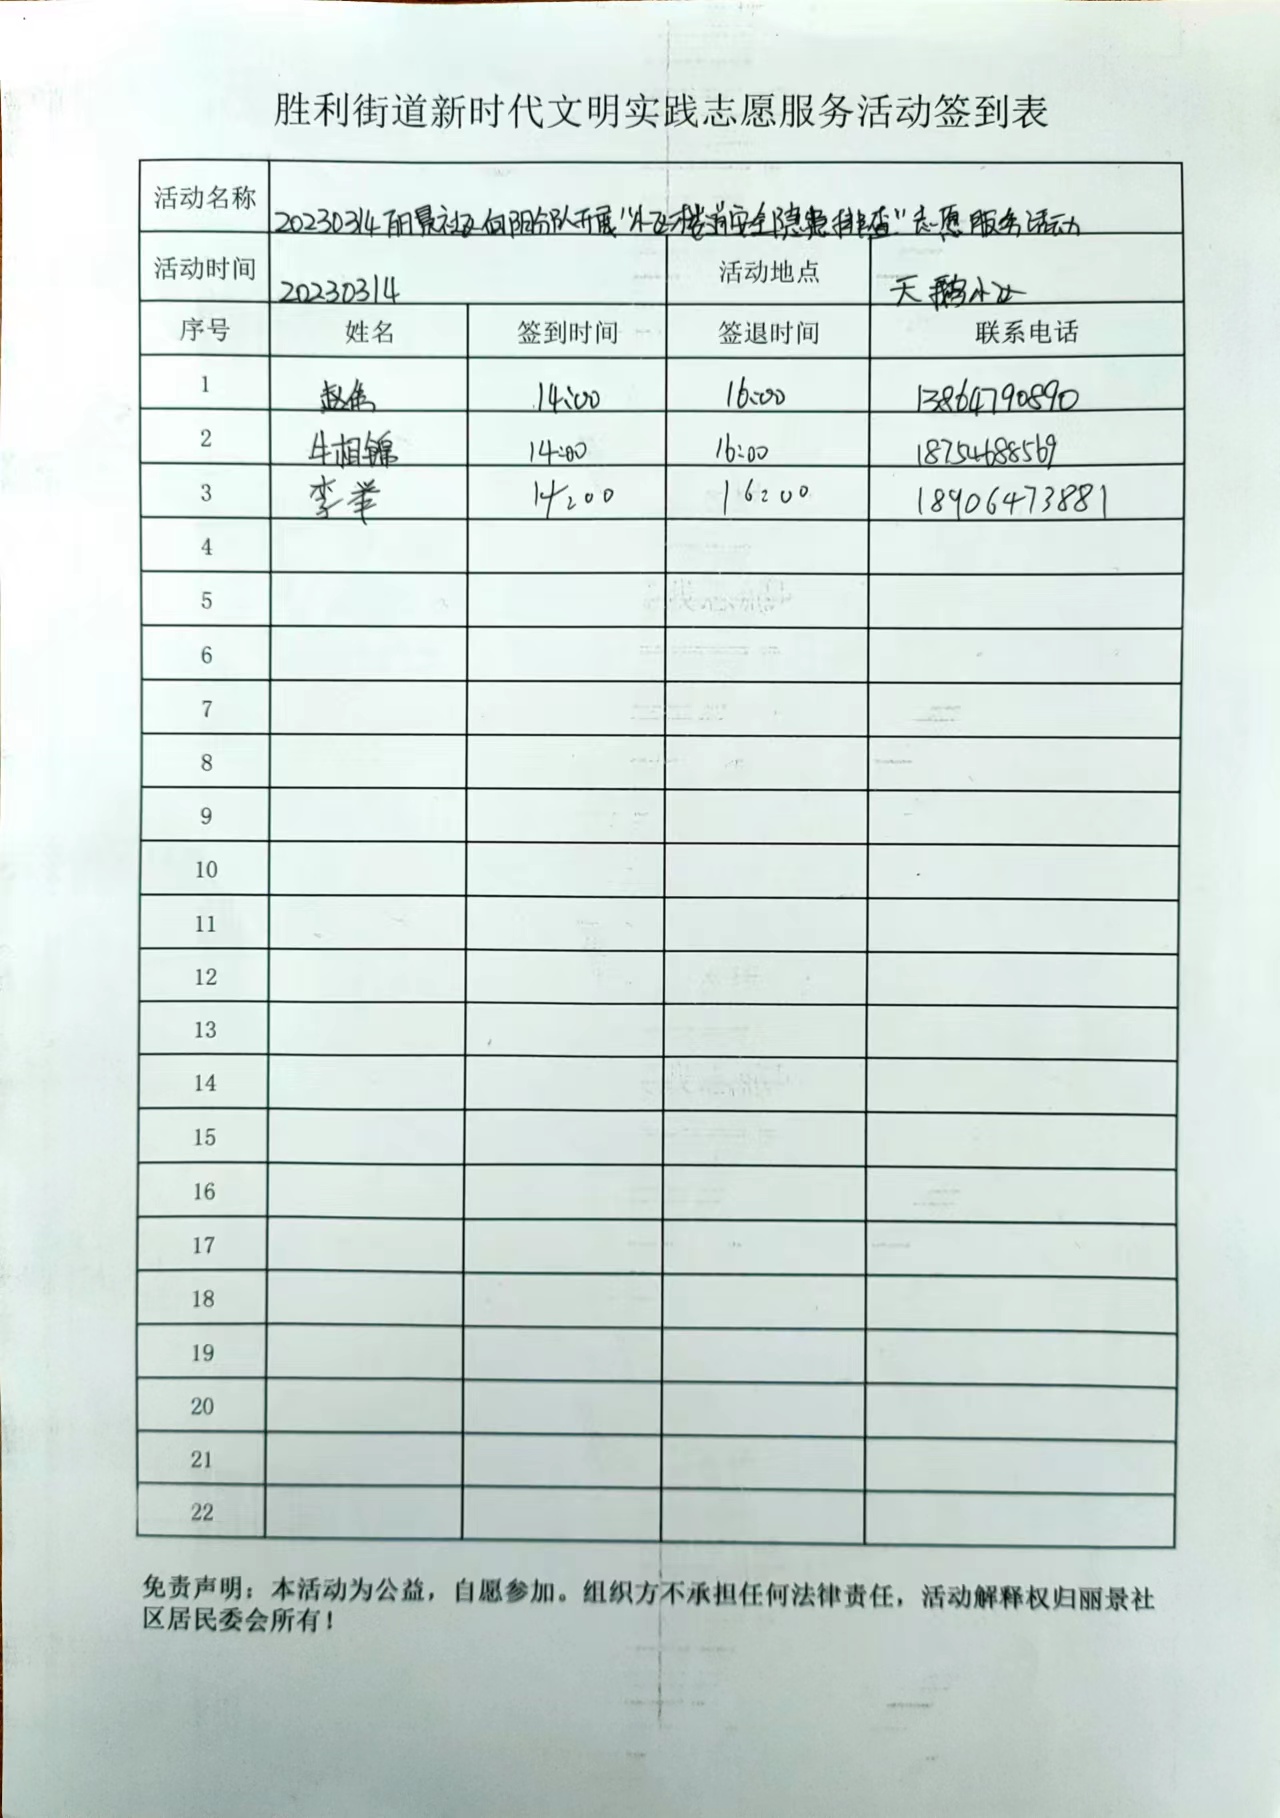 胜利街道新时代文明实践志愿服务活动签到表
活动名称 20230314丽景社区向阳分队开展“小区楼道安全隐患排查”志愿服务活动
活动时间 20230314 活动地点 天鹅小区
序号 姓名 签到时间 签退时间 联系电话
1 赵伟 14:00 16:00 13864790890
2 牛相锦 14:00 16:00 18754688569
3 李举 14:00 16:00 18906473881
4
5
6
7
8
9
10
11
12
13
14
15
16
17
18
19
20
21
22
免责声明：本活动为公益，自愿参加。组织方不承担任何法律责任，活动解释权归丽景社
区居民委会所有！